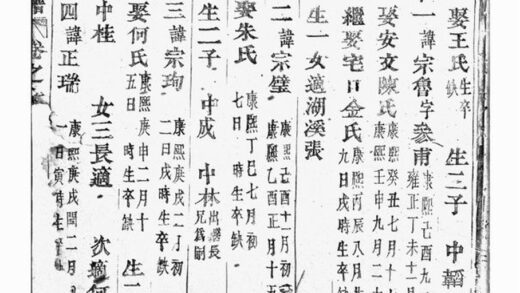 娶王氏 生卒缺 生三子 中韜
十一諱宗魯字參甫 康熙己酉九 雍正丁未十一
娶安文陳氏 康熙癸丑七月十 康熙壬申九月二十
繼娶宅口金氏 康熙丙辰八月 九日戌時生卒缺
生一女適湖溪張
二諱宗璧 康熙己酉十一月初 康熙乙酉正月十五
娶朱氏 康熙丁巳七月初 七日時生卒缺
生二子 中成 中林 出繼長兄爲嗣
三諱宗珣 康熙庚戌二月初 二日戌時生卒缺
娶何氏 康熙庚申二月十 五日時生卒缺 生一
中桂 女三長適 次適何
四諱正瑞 康熙庚戌閏二月 一日寅時生卒
譜 卷之